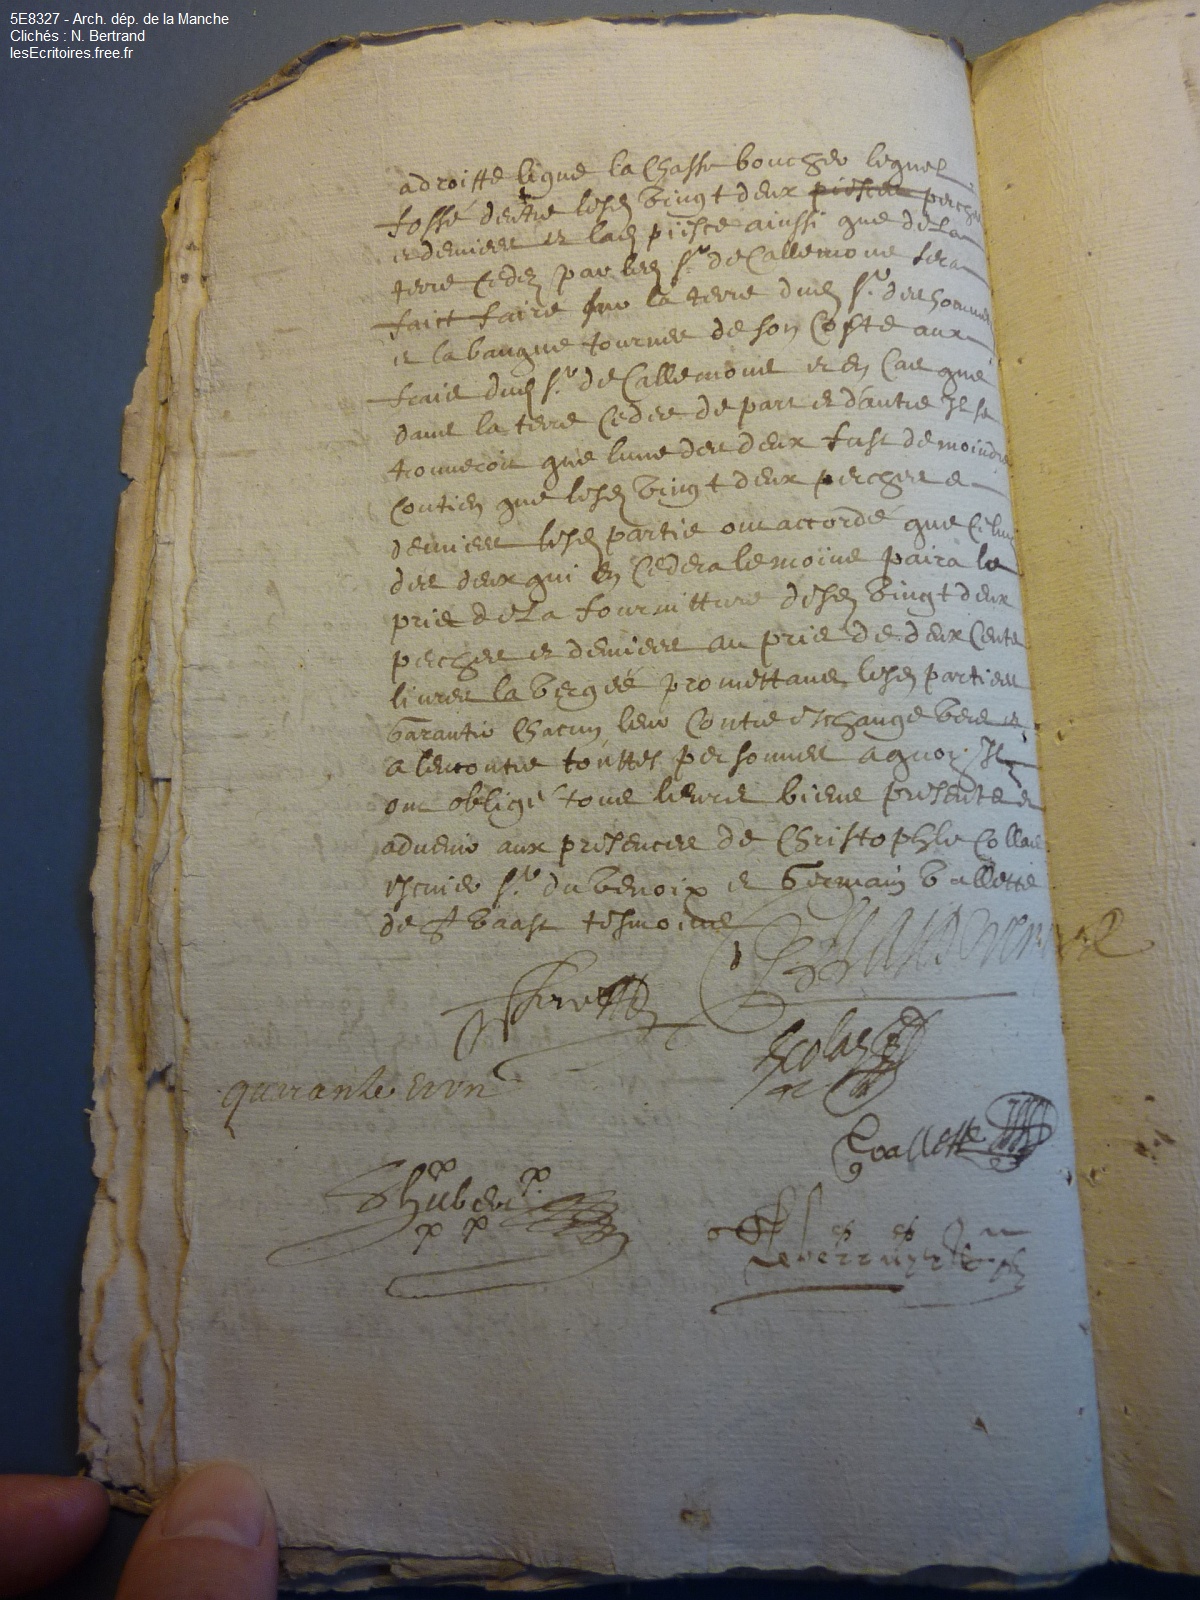 5E8327 - Arch. dép. de la Manche
Clichés : N. Bertrand
lesEcritoires.free.fr
adroitte ligne la Chasse boucher lequel
fossé dentre lesd vingt deux perches
et demiere et lad piesce ainssi que de la
terre Cedez par led sr. de Callemone sera
faict faire sur la terre dud sr. des
et la banque tournee de son Costé aux
frais dud sr. de Callemone et en Cas que
dans la terre Cedee de part et dautre Il se
trouueroit que lune des deux fust de moindre
Contien que lesd vingt deux perches e
demiere lesd partie ont accordé que Celuy
des deux qui en Cedera le moine paira le
pris de la fournitture desd vingt deux
perches et demiere au pris de deux Cents
liures la vergée promettans lesd parties
Garantir Chacun leur Contre eschange vers et
alencontre touttes personnes a quoy Ilz
ont obligé tous leurs biens presents et
aduenir aux presences de Christophle Collas
escuier sr. du benoix et Germain Vallette
de St Vaast tesmoins
quarante won
Hubert